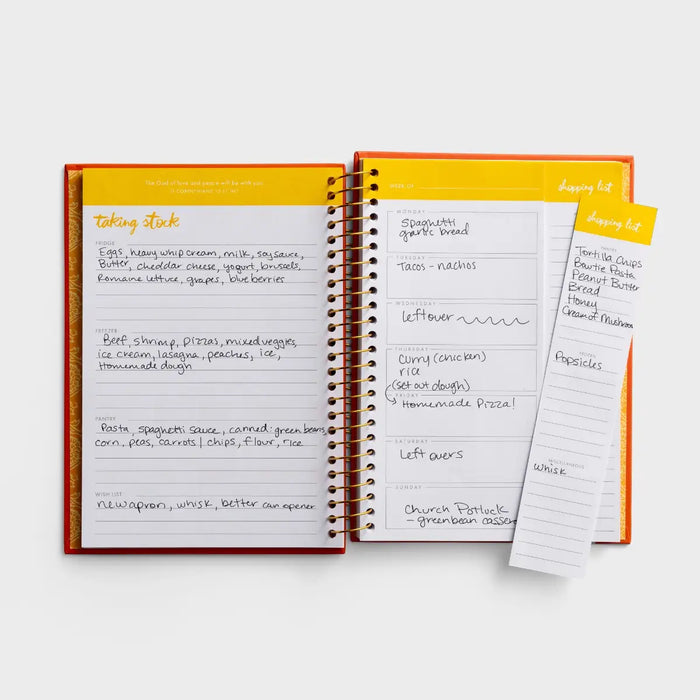 The God of love and peace will be with you.
taking stock
FRIDGE
Eggs, heavy whip cream, milk, soy sauce,
Butter, cheddar cheese, yogurt, brussels,
Romaine lettuce, grapes, blueberries
FREEZER
Beef, shrimp, pizzas, mixed veggies,
ice cream, lasagna, peaches, ice,
Homemade dough
PANTRY
Pasta, spaghetti sauce, canned: green beans,
corn, peas, carrots | chips, flour, rice
WISH LIST
new apron, whisk, better can opener
WEEK OF
shopping list
MONDAY
Spaghetti
garlic bread
TUESDAY
Tacos - nachos
WEDNESDAY
Left over
THURSDAY
Curry (chicken)
rice
(set out dough)
FRIDAY
Homemade Pizza!
SATURDAY
Left overs
SUNDAY
Church Potluck
- greenbean casser
shopping list
PANTRY
Tortilla Chips
Bowtie Pasta
Peanut Butter
Bread
Honey
Cream of Mushroom
FROZEN
Popsicles
MISCELLANEOUS
whisk